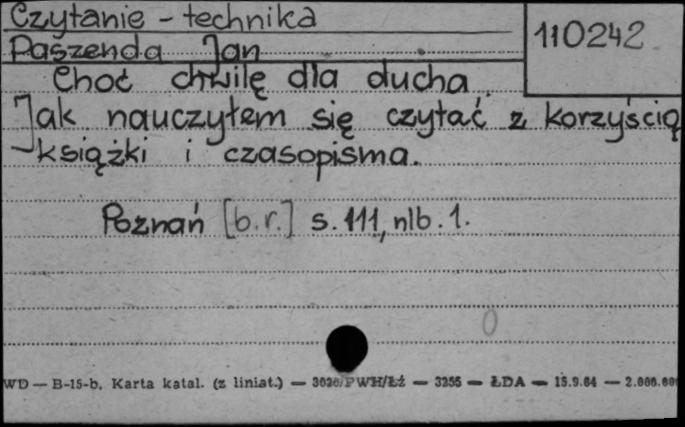 Czytanie - technika
110242
Paszenda Jan
Choć chwilę dla ducha.
Jak nauczyłem się czytać z korzyścią
książki i czasopisma.
Poznań [b.r.] s. 111, nlb. 1.
0
WD — B-15-b, Karta katal. (z liniat.) — 3020/PWH/Łź — 3255 — ŁDA — 15.9.64 — 2.000.000